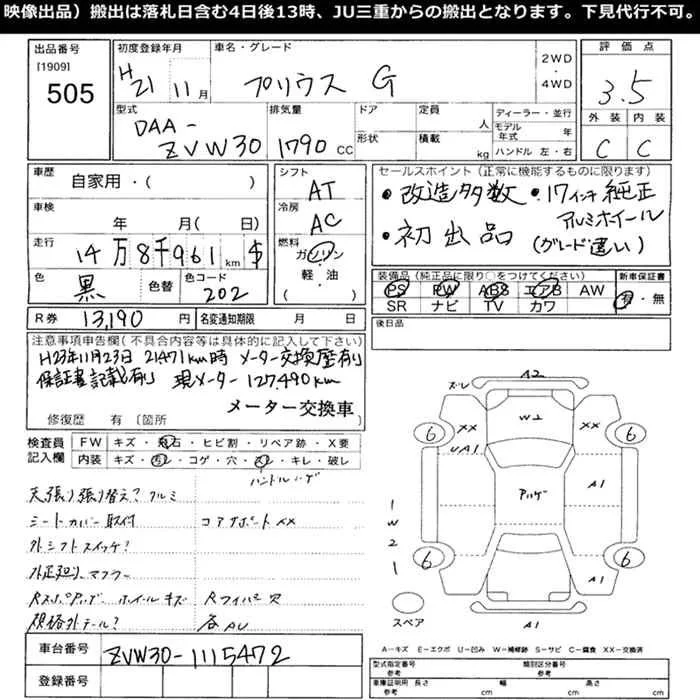 映像出品）搬出は落札日含む4日後13時、JU三重からの搬出となります。下見代行不可。
出品番号
[1909]
505
初度登録年月
H21 11月
車名・グレード
プリウス G
2WD
・
4WD
評価点
3.5
外装 内装
C C
型式
DAA-
ZVW30
排気量
1790 CC
ドア
形状
定員 人
積載 kg
ディーラー・並行
モデル
年式 年
ハンドル 左・右
車歴
自家用・( )
車検
年 月( 日)
走行
14万8千961km $
色
黒
色替
色コード
202
シフト
AT
冷房
AC
燃料
ガソリン
軽・油
( )
セールスポイント（正常に機能するものに限ります）
・改造多数 ・17インチ純正
アルミホイール
・初出品 (グレード違い)
装備品（純正品に限り○をつけてください）
PS PW ABS エアB AW
SR ナビ TV カワ
新車保証書
有・無
後日品
R券 13,190円
名変通知期限 月 日
注意事項申告欄(不具合内容等は具体的に記入して下さい)
H23年11月23日 21471km時 メーター交換歴有り
保証書記載有り 現メーター 127,490km
メーター交換車
修復歴 有 〔箇所
検査員
記入欄
FW キズ・飛石・ヒビ割・リペア跡・X要
内装 キズ・汚レ・コゲ・穴・スレ・キレ・破レ
ハンドルハゲ
天張り張り替え? クルミ
シートカバー取付 コアサポートXX
外シフトスイッチ?
外足廻り、マフラー
Rスポアハゲ ホイールキズ Rワイパー穴
規格外テール? 各AU
車台番号 ZVW30-1115472
登録番号
ズレ A2
XX
UA1
W2
XX
6 6
アハゲ
A1
1
W
2
1
6 6
A1
A1
スペア
A－キズ E－エクボ U－凹み W－補修跡 S－サビ C－腐食 XX－交換済
型式指定番号 類別区分番号
車庫証明用 長さ cm 幅 cm 高さ cm